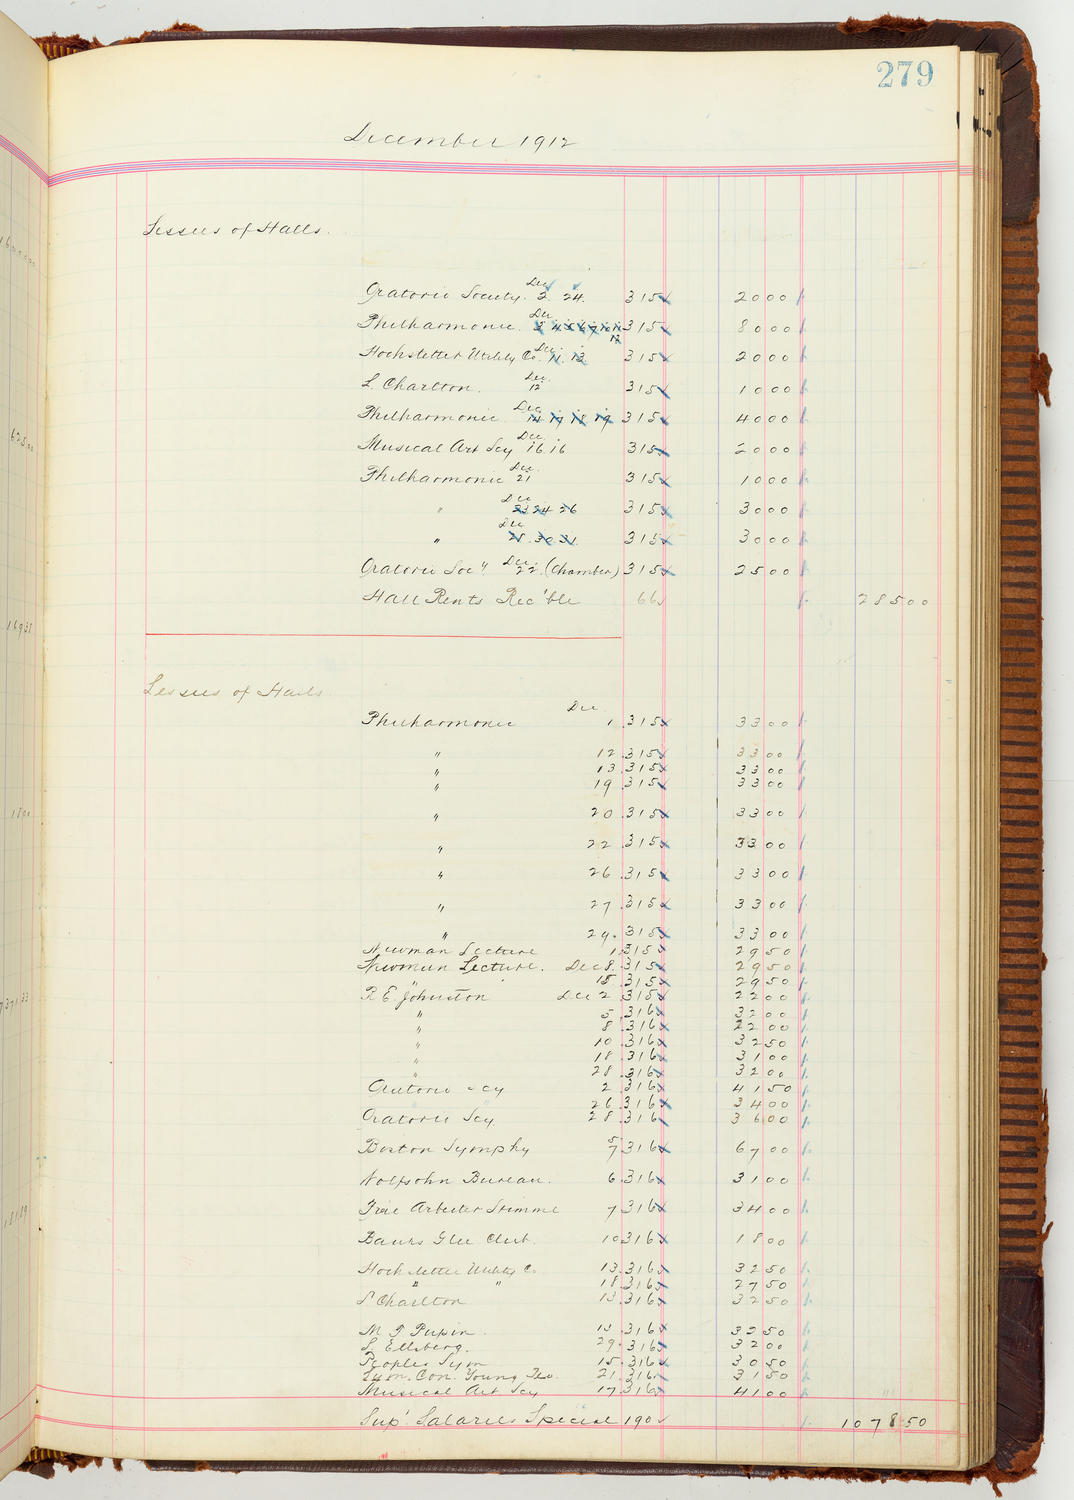 279
December 1912
Lessees of Halls.
Oratorio Society. Dec 2. 24. 315 2000
Philharmonic. Dec 3 4 5 6 7 10 11 12 315 8000
Hochstetter Utility Co. Dec 11. 13. 315 2000
L. Charlton. Dec. 12 315 1000
Philharmonic Dec 14 17 18 19 315 4000
Musical Art Scy Dec 16 16 315 2000
Philharmonic Dec. 21 315 1000
" Dec 23 24 26 315 3000
" Dec 28. 30 31. 315 3000
Oratorio Soc'y. Dec 22. (Chamber) 315 2500
Hall Rents Rec'ble 66 28500
Lessees of Halls
Philharmonic Dec. 1. 315 3300
" 12 315 3300
" 13 315 3300
" 19 315 3300
" 20 315 3300
" 22 315 3300
" 26 315 3300
" 27 315 3300
" 29. 315 3300
Newman Lecture 1. 315 2950
Newman Lecture. Dec 8. 315 2950
" 15 315 2950
R. E. Johnston Dec 2 315 2200
" 5 316 3200
" 8 316 2200
" 10 316 3250
" 18 316 3100
" 28 316 3200
Oratorio Scy 2 316 4150
" 26 316 3400
Oratorio Scy 28 316 3600
Boston Symphy 5 7 316 6700
Wolfsohn Bureau. 6 316 3100
Freie Arbeiter Stimme 7 316 3400
Banks Glee Club. 10 316 1800
Hochstetter Utility Co 13 316 3250
" " 18 316 2750
L Charlton 13 316 3250
M. I. Pupin. 13 316 3250
S. Ellsberg. 29. 316 3200
Peoples Sym 15. 316 3050
Sym. Con. Young Peo. 21. 316 3150
Musical Art Scy 17 316 4100
Sup' Salaries Special 190 107850